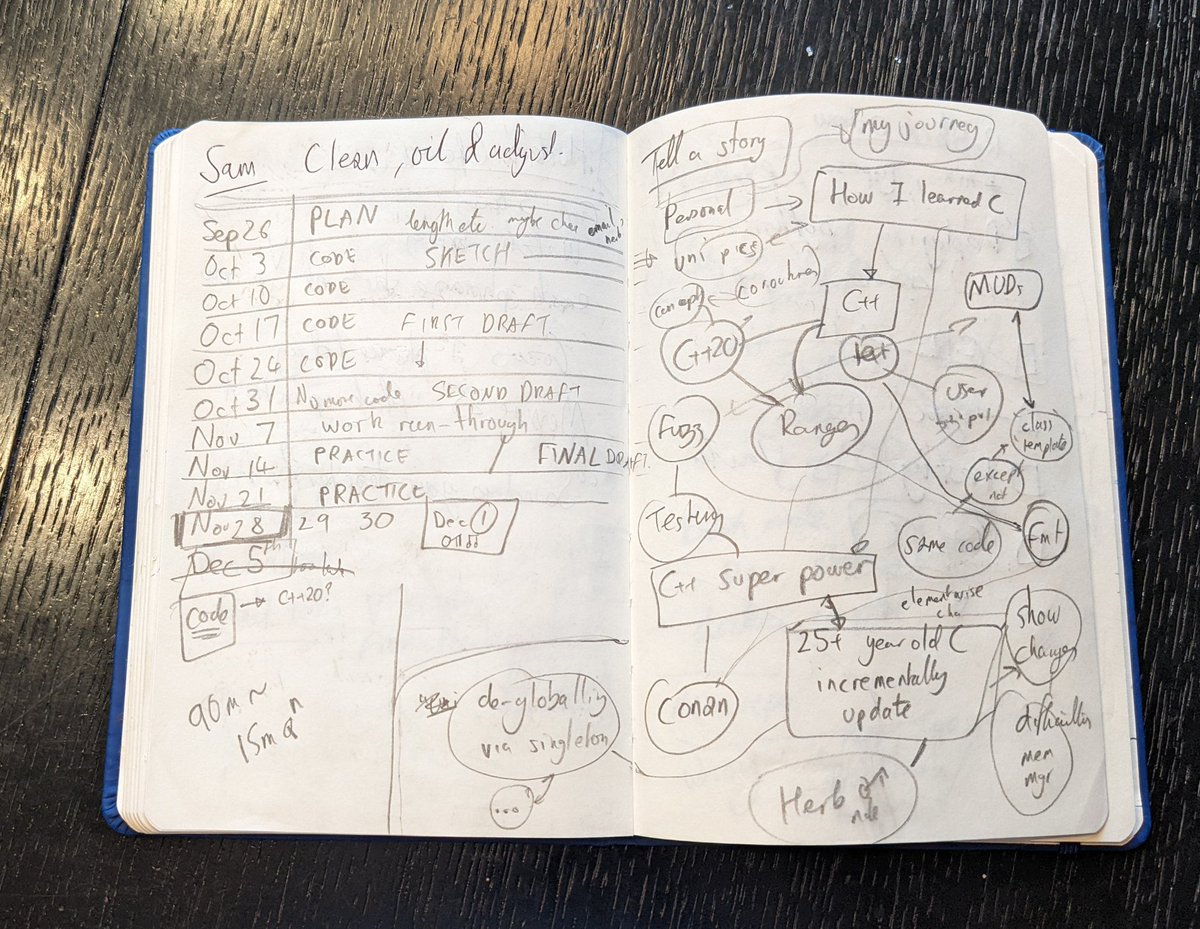 Sam Clean, oil & adjust.
Sep 26 PLAN length etc. maybe email
Oct 3 CODE SKETCH
Oct 10 CODE
Oct 17 CODE FIRST DRAFT
Oct 24 CODE ↓
Oct 31 No more code SECOND DRAFT
Nov 7 work run-through
Nov 14 PRACTICE FINAL DRAFT.
Nov 21 PRACTICE
Nov 28 29 30 Dec 1
Dec 5th
Code → C++20?
90m ~
15m Q
via singleton
...
Tell a story
my journey
Personal
How I learned C
uni pics
concepts
coroutines
C++
MUDs
C++20
test
user
Fuzz
Ranges
class
template
except
not
Testing
same code
fmt
C++ super power
elementwise
show
changes
25+ year old C
incrementally
update
Conan
mem
mgr
Herb